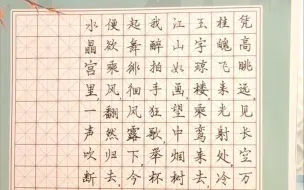 凭高眺远见长空万
桂魄飞来光射处冷
玉宇琼楼乘鸾来去
江山如画望中烟树
我醉拍手狂歌举杯
起舞徘徊风露下今
便欲乘风翻然归去
水晶宫里一声吹断